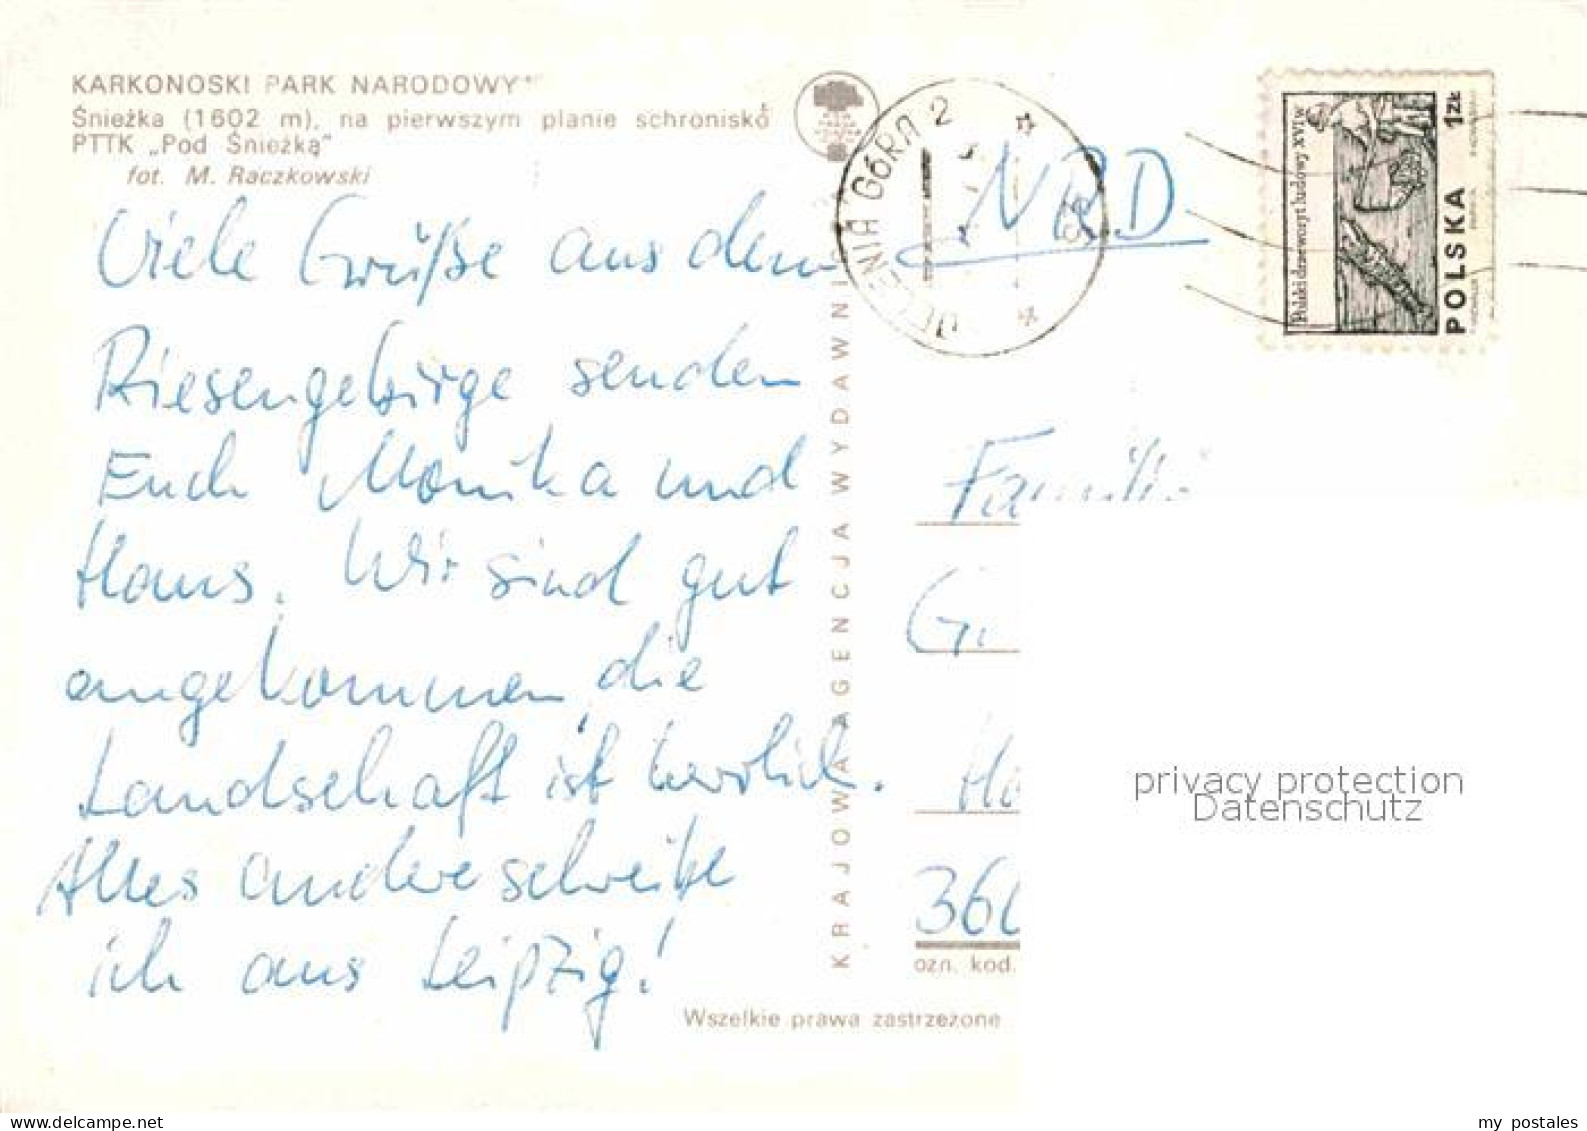 KARKONOSKI PARK NARODOWY
Śnieżka (1602 m), na pierwszym planie schronisko
PTTK „Pod Śnieżką"
fot. M. Raczkowski
Viele Grüße aus dem
Riesengebirge senden
Euch Monika und
Hans. Wir sind gut
angekommen, die
Landschaft ist herrlich.
Alles andere schreibe
ich aus Leipzig!
KRAJOWA AGENCJA WYDAWNI
Wszelkie prawa zastrzeżone
JELENIA GÓRA 2
NRD
Polski drzeworyt ludowy XVI w
POLSKA 1ZŁ
Famili
G
Ha
36
ozn. kod.
privacy protection
Datenschutz
www.delcampe.net
my_postales